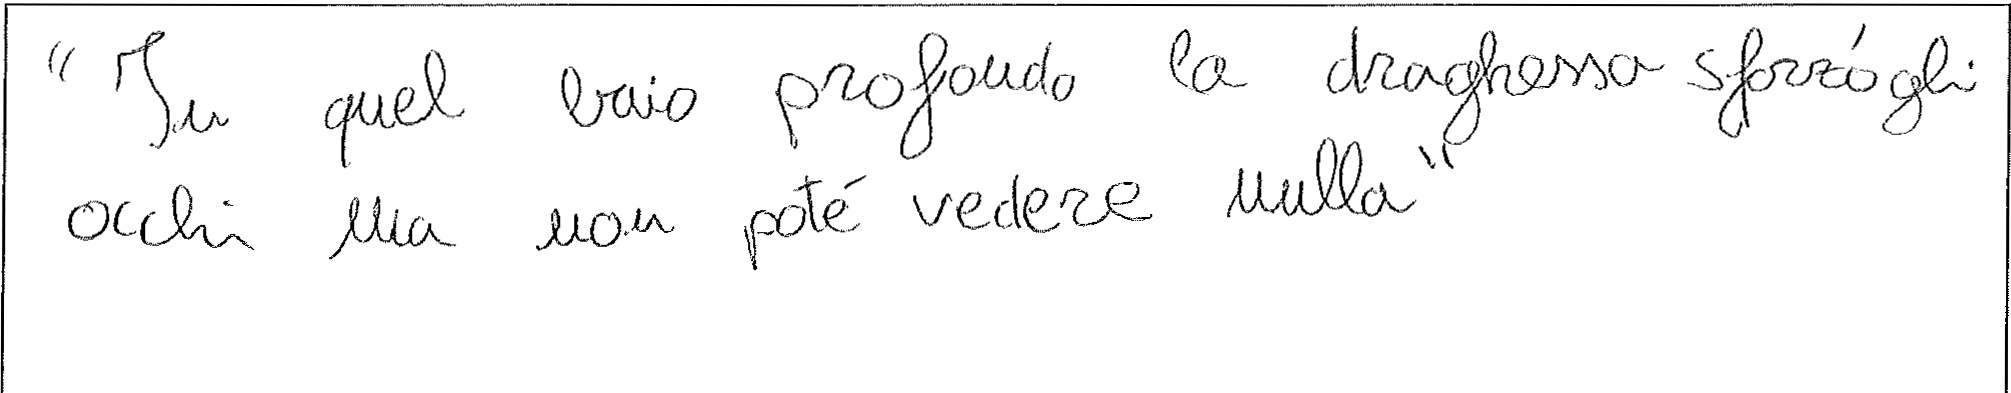 "In quel buio profondo la draghessa sforzó gli
occhi ma non poté vedere nulla"